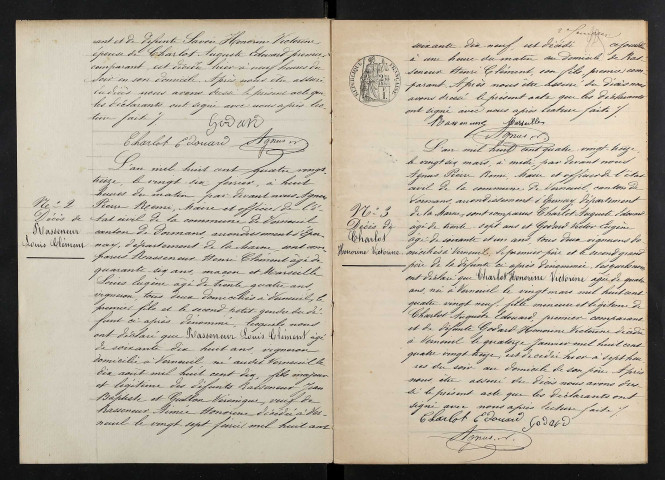 épouse de Charlot Auguste Edouard premier
comparant est décédée hier à neuf heures du
soir en son domicile. Après nous être assuré
du décès nous avons dressé le présent acte que
les déclarants ont signé avec nous après lec-
ture fait /
Godard
Charlot Edouard Agnus
L'an mil huit cent quatre vingt
treize, le vingt six février, à huit
heures du matin, par devant nous Agnus
Pierre Remi, Maire et officier de l'E-
tat civil de la commune de Verneuil
canton de Dormans, arrondissement d'Eper-
nay, département de la Marne, sont com-
parus Rasseneur Henri Clément âgé de
quarante ans, maçon et Marseille
Louis Eugène âgé de trente quatre ans,
vigneron, tous deux domiciliés à Verneuil, le
premier fils et le second gendre du dé-
funt ci après dénommé, lesquels nous
ont déclaré que Rasseneur Louis Clément âgé
de soixante dix huit ans, vigneron
domicilié à Verneuil né audit Verneuil le
dix août mil huit cent dix, fils majeur
et légitime des défunts Rasseneur Jean
Baptiste et Véronique, veuf de
Rasseneur Aimée Honorine décédée à Ver-
neuil le vingt sept mil huit cent
No 2
Décès de
Rasseneur
Louis Clément
soixante dix neuf, est décédé
à une heure du matin au domicile de Ras-
seneur Henri Clément, son fils, premier com-
parant. Après nous être assuré du décès nous
avons dressé le présent acte que les déclarants
ont signé avec nous après lecture fait /
Rasseneur Marseille
Agnus
L'an mil huit cent quatre vingt treize,
le vingt six mars, à midi, par devant nous
Agnus Pierre Remi, Maire et officier de l'état
civil de la commune de Verneuil, canton de
Dormans, arrondissement d'Epernay, département
de la Marne, sont comparus Charlot Auguste Edouard
âgé de trente sept ans et Godard Victor Eugène
âgé de soixante et un ans, tous deux vignerons do-
miciliés à Verneuil, le premier père et le second grand
père de la défunte ci après dénommée, lesquels nous
ont déclaré que Charlot Honorine Victorine âgée de quatre
ans, née à Verneuil le vingt mars mil huit cent
quatre vingt neuf, fille mineure et légitime de
Charlot Auguste Edouard, premier comparant
et de défunte Godard Honorine Victorine décédée
à Verneuil le quatorze janvier mil huit cent
quatre vingt treize, est décédée hier à sept heu-
res du soir au domicile de son père. Après
nous être assuré du décès nous avons dres-
sé le présent acte que les déclarants ont
signé avec nous après lecture fait /
Charlot Edouard Godard
Agnus
No 3
Décès de
Charlot
Honorine Victorine